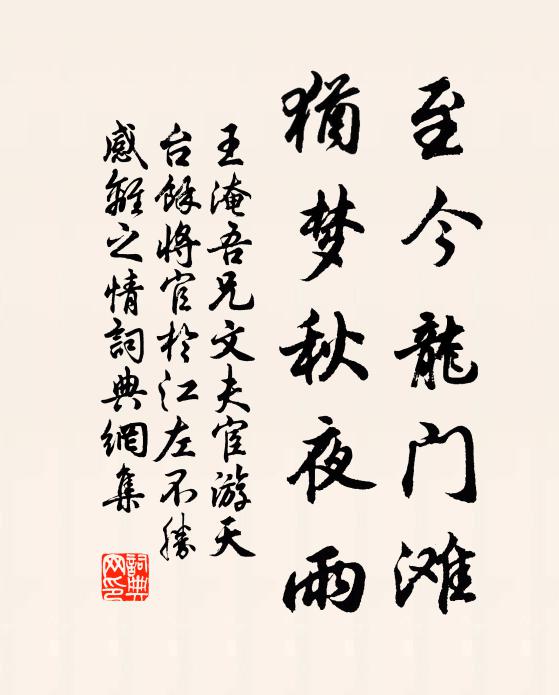 至今龍门滩
猶梦秋夜雨
王淹吾兄文夫宦游天
台餘将官於江左不勝
感離之情詞典網集
詞典网印